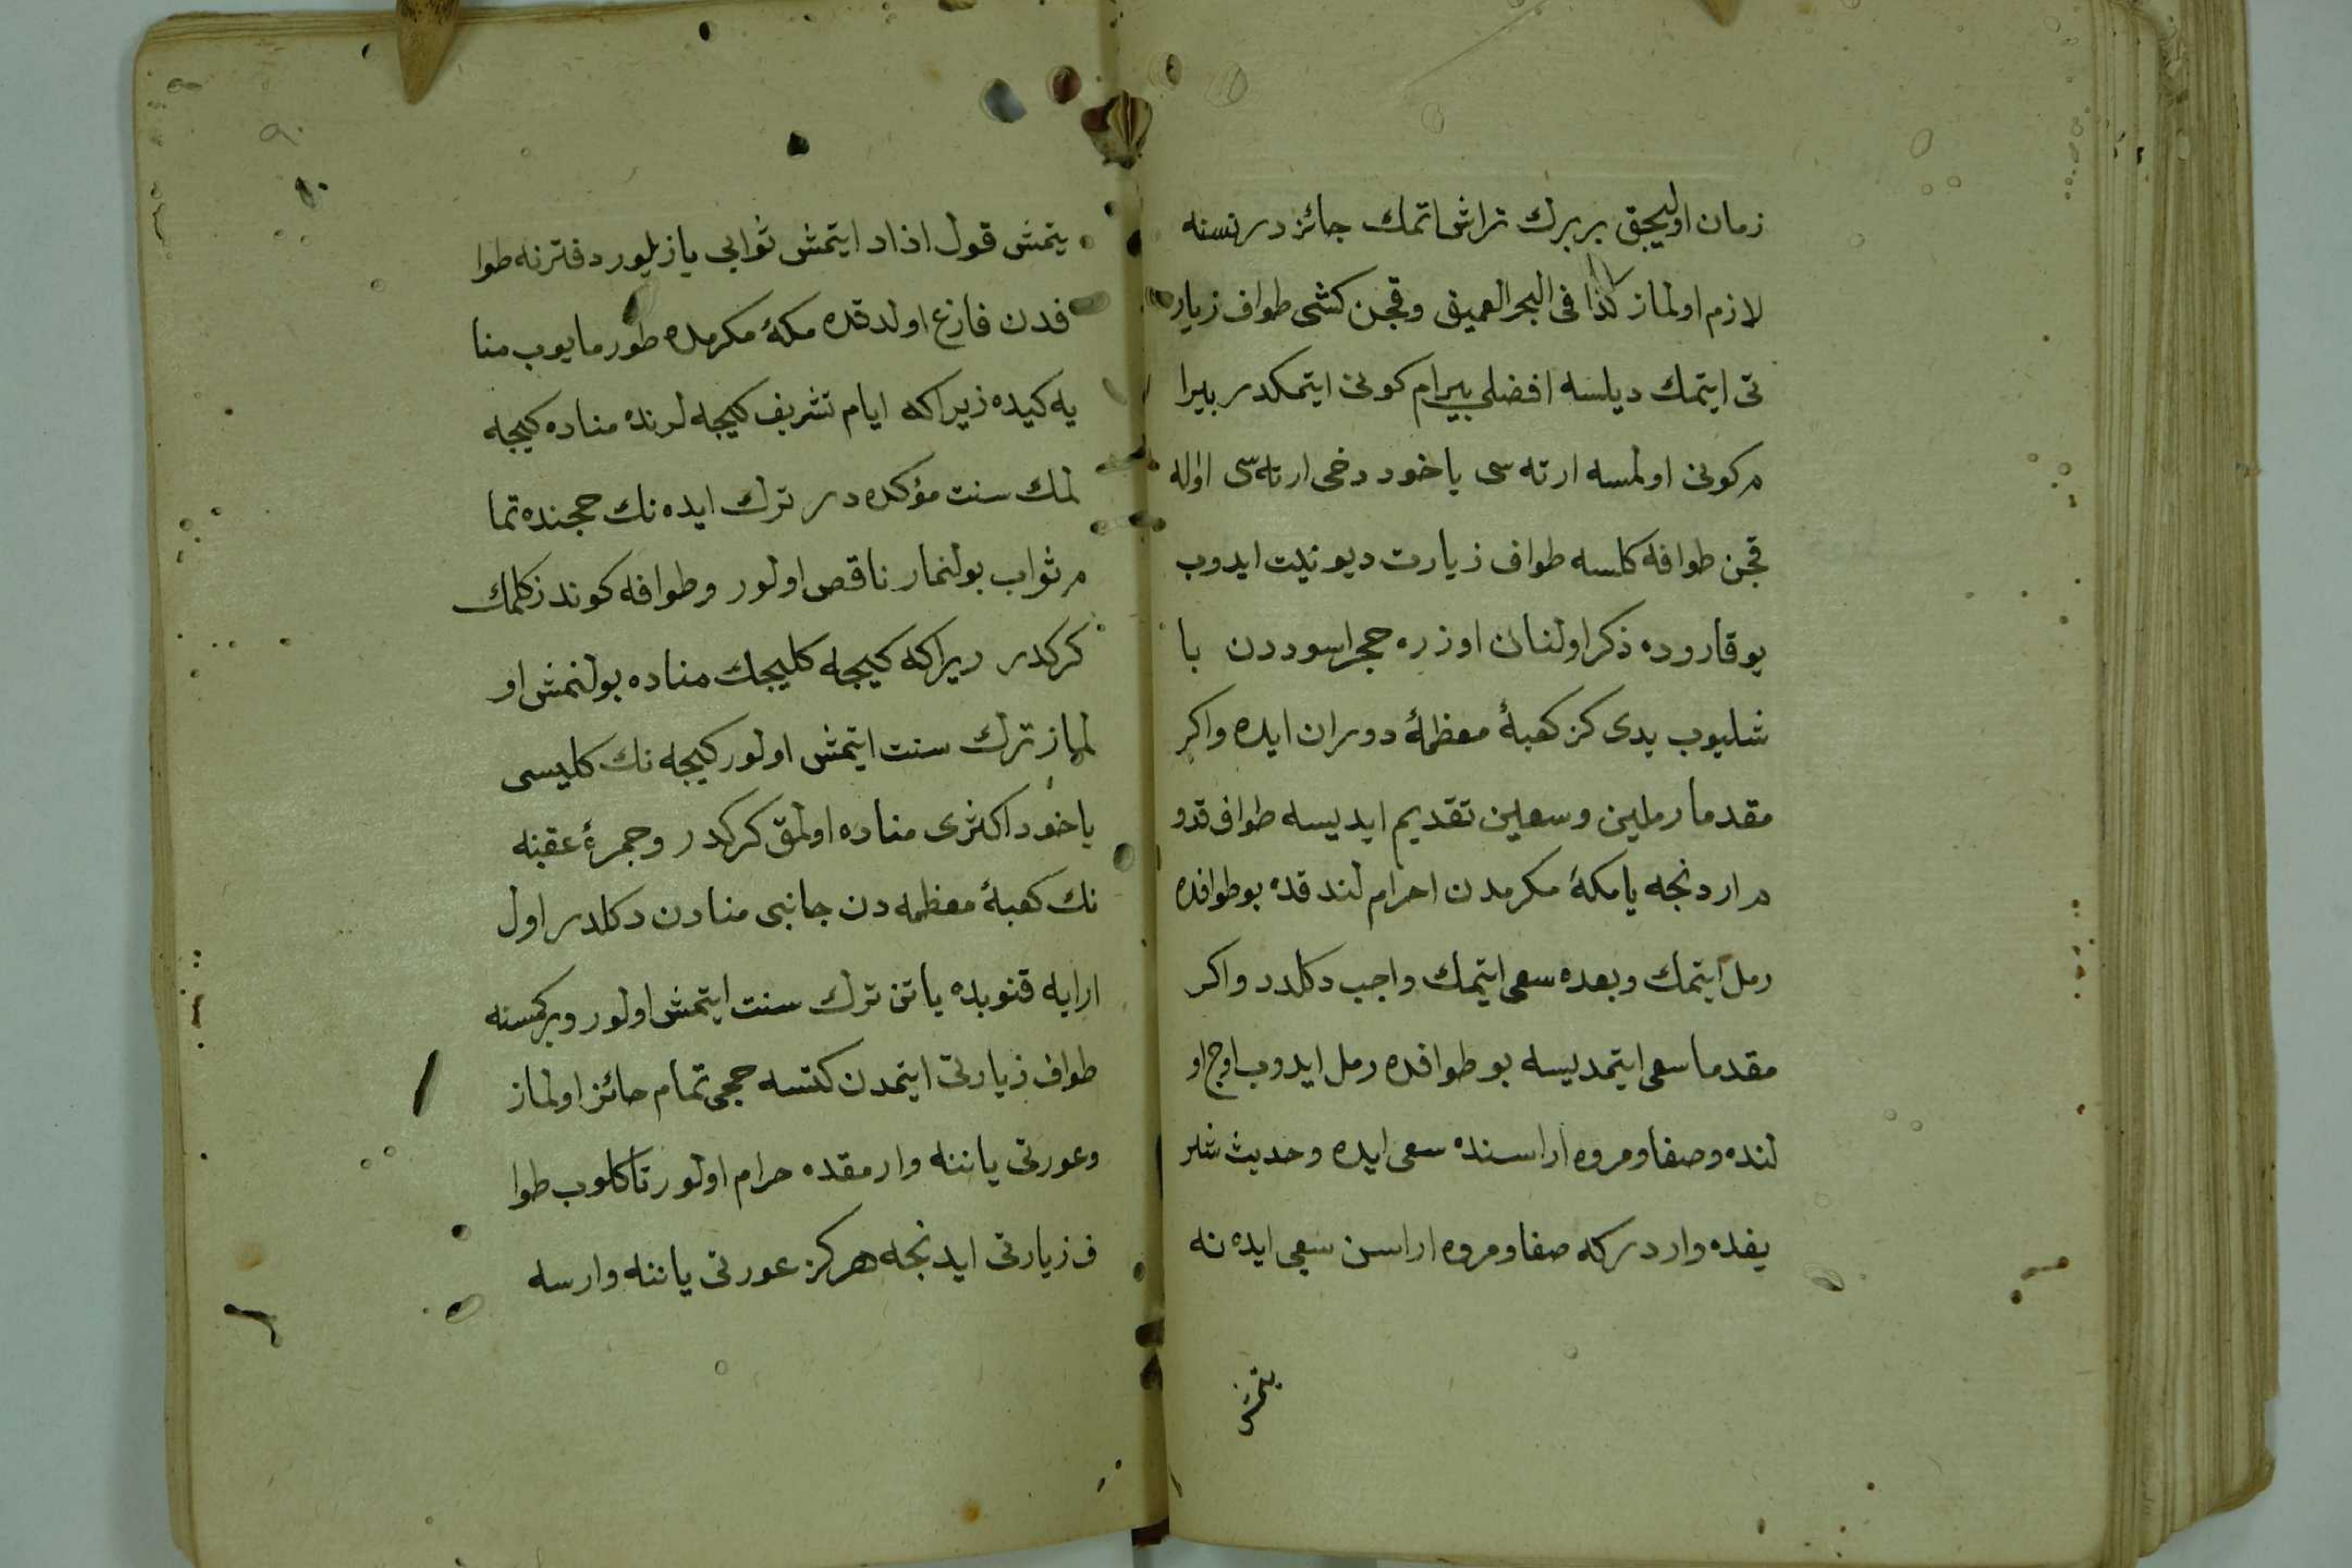 زمان اوليجق بر برك تراش اتمك جائز در نسنه
لازم اولماز كذا فى البحر العميق و قچن كشى طواف زيار
تى ايتمك ديلسه افضلى بيرام كونى ايتمكدر بيرا
م كونى اولمسه ارته سى ياخود دخى ارته سى اوله
قچن طوافه كلسه طواف زيارت ديو نيت ايدوب
يوقاروده ذكر اولنان اوزره حجر اسوددن با
شليوب يدى كز كعبۀ معظمۀ دوران ايده و اكر
مقدما رملين و سعين تقديم ايديسه طواف قدو
م اردنجه يا مكۀ مكرمدن احرام لندقده بو طوافده
رمل ايتمك و بعده سعى ايتمك واجب دكلدر و اكر
مقدما سعى ايتمديسه بو طوافده رمل ايدوب اوج او
لنده و صفا و مروه اراسنده سعى ايده و حديث شر
يفده وارد ركه صفا و مروه اراسن سعى ايده نه
يتمش
يتمش قول اذاد ايتمش ثوابى يازيلور دفترنه طوا
فدن فارغ اولدقده مكۀ مكرمده طورمايوب منا
يه كيده زيرا كه ايام تشريف كيجه لرنده مناده كيجه
لمك سنت مؤكده در ترك ايده نك حجنده تما
م ثواب بولنمار ناقص اولور و طوافه كوندز كلمك
كركدر زيرا كه كيجه كليجك مناده بولنمش او
لماز ترك سنت ايتمش اولور كيجه نك كليسى
ياخود اكثرى مناده اولمق كركدر و جمرۀ عقبنه
نك كعبۀ معظمه دن جانبى منادن دكلدر اول
ارايه قنوبده ياتن ترك سنت ايتمش اولور و بر كمسنه
طواف زيارتى ايتمدن كتسه حجى تمام جائز اولماز
و عورتى ياننه وارمقده حرام اولور تا كلوب طوا
ف زيارتى ايدنجه هر كز عورتى ياننه وارسه